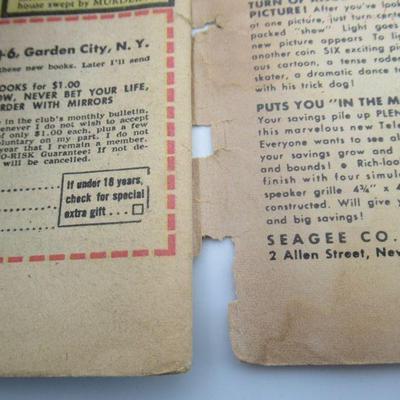 house swept by MURDER
-6, Garden City, N. Y.
these new books. Later I'll send
OOKS for $1.00
OW, NEVER BET YOUR LIFE,
RDER WITH MIRRORS
e in the club's monthly bulletin.
henever I do not wish to accept
f only $1.00 each, plus a few
oluntary on my part. I do not
year that I remain a member.
O-RISK Guarantee: If not de-
will be cancelled.
If under 18 years,
check for special
extra gift . . .
TURN OF
PICTURE! After you've look
at one picture, just turn center
packed "show" Light goes
new picture appears To ligh
another coin SIX exciting pi
ous cartoon, a tense rodeo
skater, a dramatic dance t
with his trick dog!
PUTS YOU "IN THE M
Your savings pile up PLEN
this marvelous new Tele
Everyone wants to see al
your savings grow and
and bounds! • Rich-loo
finish with four simula
speaker grille 4¾" x 4
constructed. Will give yo
and big savings!
SEAGEE CO.
2 Allen Street, New